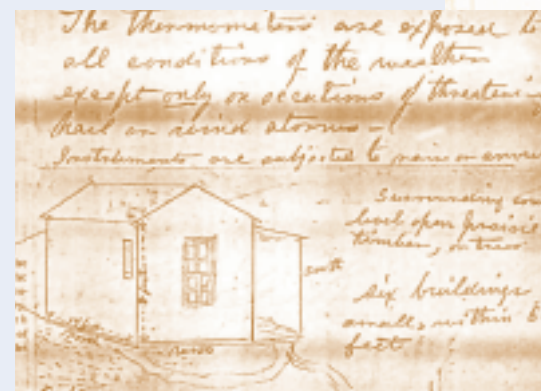 The thermometers are exposed to
all conditions of the weather
except only on occations of threateni
hail or wind storms –
Instruments are subjected to rain or
Surrounding
level open prairie
timber,
south
six buildings
small, within
feet